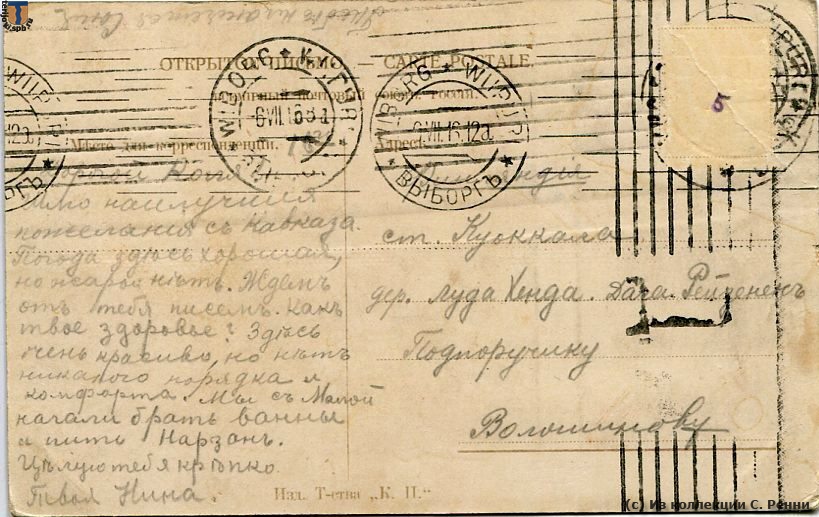 ОТКРЫТОЕ ПИСЬМО. — CARTE POSTALE.
Всемірный почтовый союзъ. Россія.
Мѣсто для корреспонденціи.
Адресъ:
WIBORG * WIIPURI
6.VII.16.12a.
* ВЫБОРГЪ *
5
Дорогой Коля
наилучшия
пожелания съ Кавказа.
Погода здѣсь хорошая,
но жаровъ нѣтъ. Ждемъ
отъ тебя писемъ. Какъ
твое здоровье? Здѣсь
очень красиво, но нѣтъ
никакого порядка и
комфорта. Мы съ
начали брать ванны
и пить Нарзанъ.
Цѣлую тебя крѣпко.
Твоя Нина.
Финляндія
ст. Куоккала
дер. луда Хенда. Дача. Рейпенень
Подпоручику
Волошинову
Изд. Т-ства „К. П."
(с) Из коллекции С. Ренни